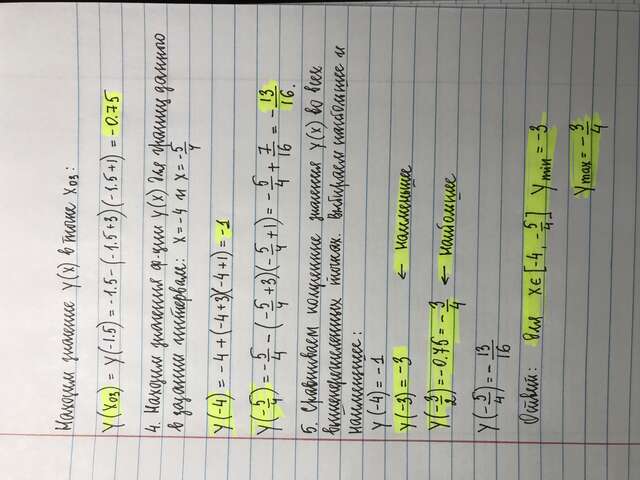 Находим значение y(x) в точке x₀₃:
y(x₀₃) = y(-1.5) = -1.5-(-1.5+3)(-1.5+1) = -0.75
4. Находим значения ф-ции y(x) для границ данного
в задании интервала: x=-4 и x=-5/4
y(-4) = -4+(-4+3)(-4+1)=-1
y(-5/4) = -5/4-(-5/4+3)(-5/4+1)=-5/4+7/16=-13/16.
5. Сравниваем полученные значения y(x) во всех
вышеперечисленных точках. Выбираем наибольшее и
наименьшее:
y(-4)=-1
y(-3)=-3 ← наименьшее
y(-3/2)=-0.75=-3/4 ← наибольшее
y(-5/4)=-13/16
Ответ: для x∈[-4, -5/4] y min=-3
y max=-3/4